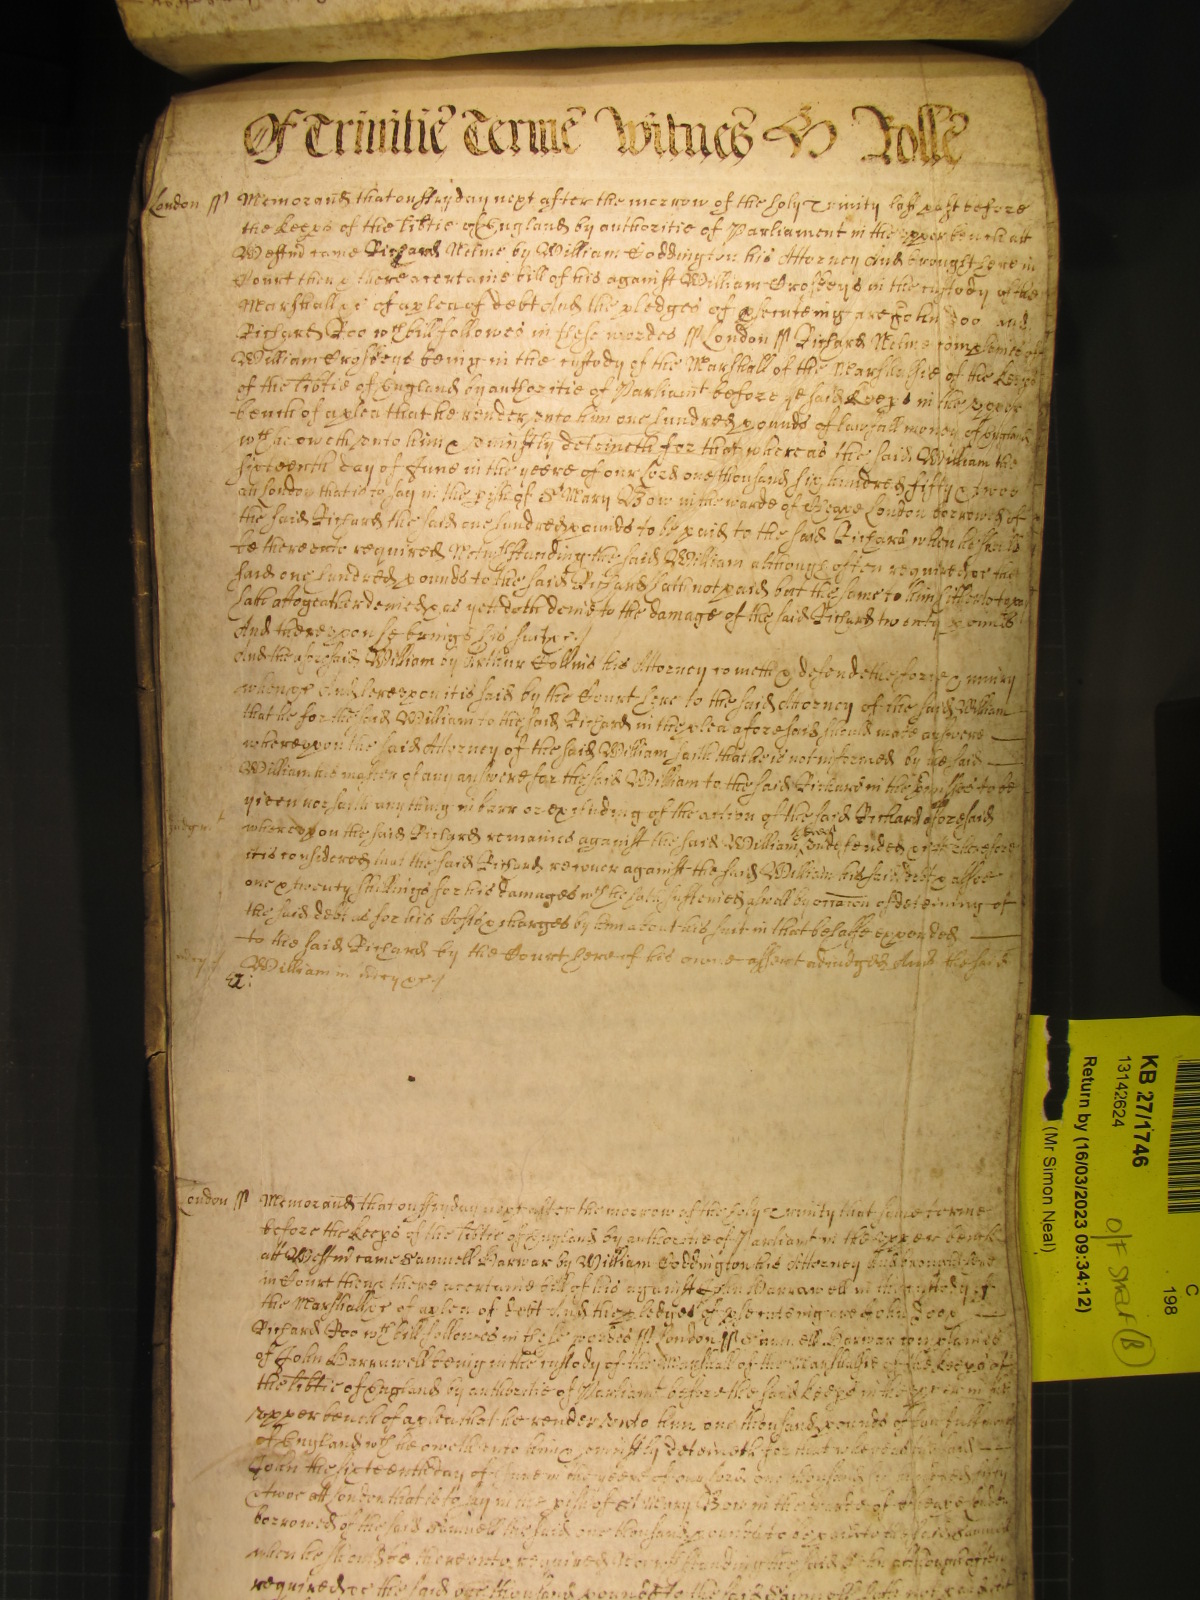 Of Trinitie Terme Witnes H Rolle
London ss Memorand that on ffryday next after the morrow of the holy Trinity last past before
the keeps of the libtie of England by authoritie of Parliament in the upper bench att
Westmr came Richard Nelme by William Coddington his Attorney And brought here in
Court then & there a certaine bill of his against William in the custody of the
Marshall &c of a plea of debt And the pledges of psecuteing are John Doo and
Richard Roo wch bill followes in these wordes ss London ss Richard Nelme complaines of
William being in the custody of the Marshall of the Marshalsie of the keeps
of the libtie of England by authoritie of Parliamt before ye said keeps in the upper
bench of a plea that he render unto him one hundred pounds of lawfull money of England
wch he oweth unto him & uniustly deteineth for that whereas the said William the
sixteenth day of June in the yeere of our Lord one thousand six hundred fifty & twoe
att London that is to say in the pish of St Mary Bow in the warde of Cheape London borrowed of
the said Richard the said one hundred pounds to be paid to the said Richard when he should
be thereunto required Notwthstanding the said William although often required &c the
said one hundred pounds to the said Richard hath not paid but the same to him hitherto to pay
hath altogeather denied & as yet doth denie to the damage of the said Richard twenty pounds
And thereupon he brings his suite &c
And the aforesaid William by Arthur Collins his Attorney cometh & defendeth the force & iniury
when &c And hereupon it is said by the Court here to the said Attorney of the said William
that he for the said William to the said Richard in the plea aforesaid should make answere
whereupon the said Attorney of the said William saith that he is not informed by the said
William his master of any answere for the said William to the said Richard in the pmisses to be
given nor saith anything in barr or excluding of the action of the said Richard aforesaid
whereupon the said Richard remaines against the said William thereof undefended &c Therefore
Judgmt
it is considered that the said Richard recover against the said William his said debt & alsoe
one & twenty shillings for his damages wch he hath susteined aswell by occasion of deteining of
the said debt as for his Costs & charges by him about his suit in that behalfe expended
to the said Richard by the Court here of his owne assent adiudged And the said
mercy
William in mercy &c
London ss Memorand that on ffryday next after the morrow of the holy Trinity that same terme
before the keeps of the libtie of England by authoritie of Parliamt in the upper bench
att Westmr came Samuell Harwar by William Coddington his Attorney And brought here
in Court then & there a certaine bill of his against John Barrawell in the custody of
the Marshall &c of a plea of debt And the pledges of psecuteing are John Doo &
Richard Roo wch bill followes in these wordes ss London ss Samuell Harwar complaines
of John Barrawell being in the custody of the Marshall of the Marshalsie of the keeps of
the libtie of England by authoritie of Parliamt before the said keeps in the
upper bench of a plea that he render unto him one thousand pounds of lawfull money
of England wch he oweth unto him & uniustly deteineth for that whereas the said
John the sixteenth day of June in the yeere of our Lord one thousand six hundred fifty
& twoe att London that is to say in the pish of St Mary Bow in the warde of Cheape London
borrowed of the said Samuell the said one thousand pounds to be paid to the said Samuell
when he should be thereunto required Notwthstanding the said John although often
required &c the said one thousand pounds to the said Samuell hath not paid but
KB 27/1746
13142624
Return by (16/03/2023 09:34:12)
(Mr Simon Neal)
C
198
O/F Shelf (B)